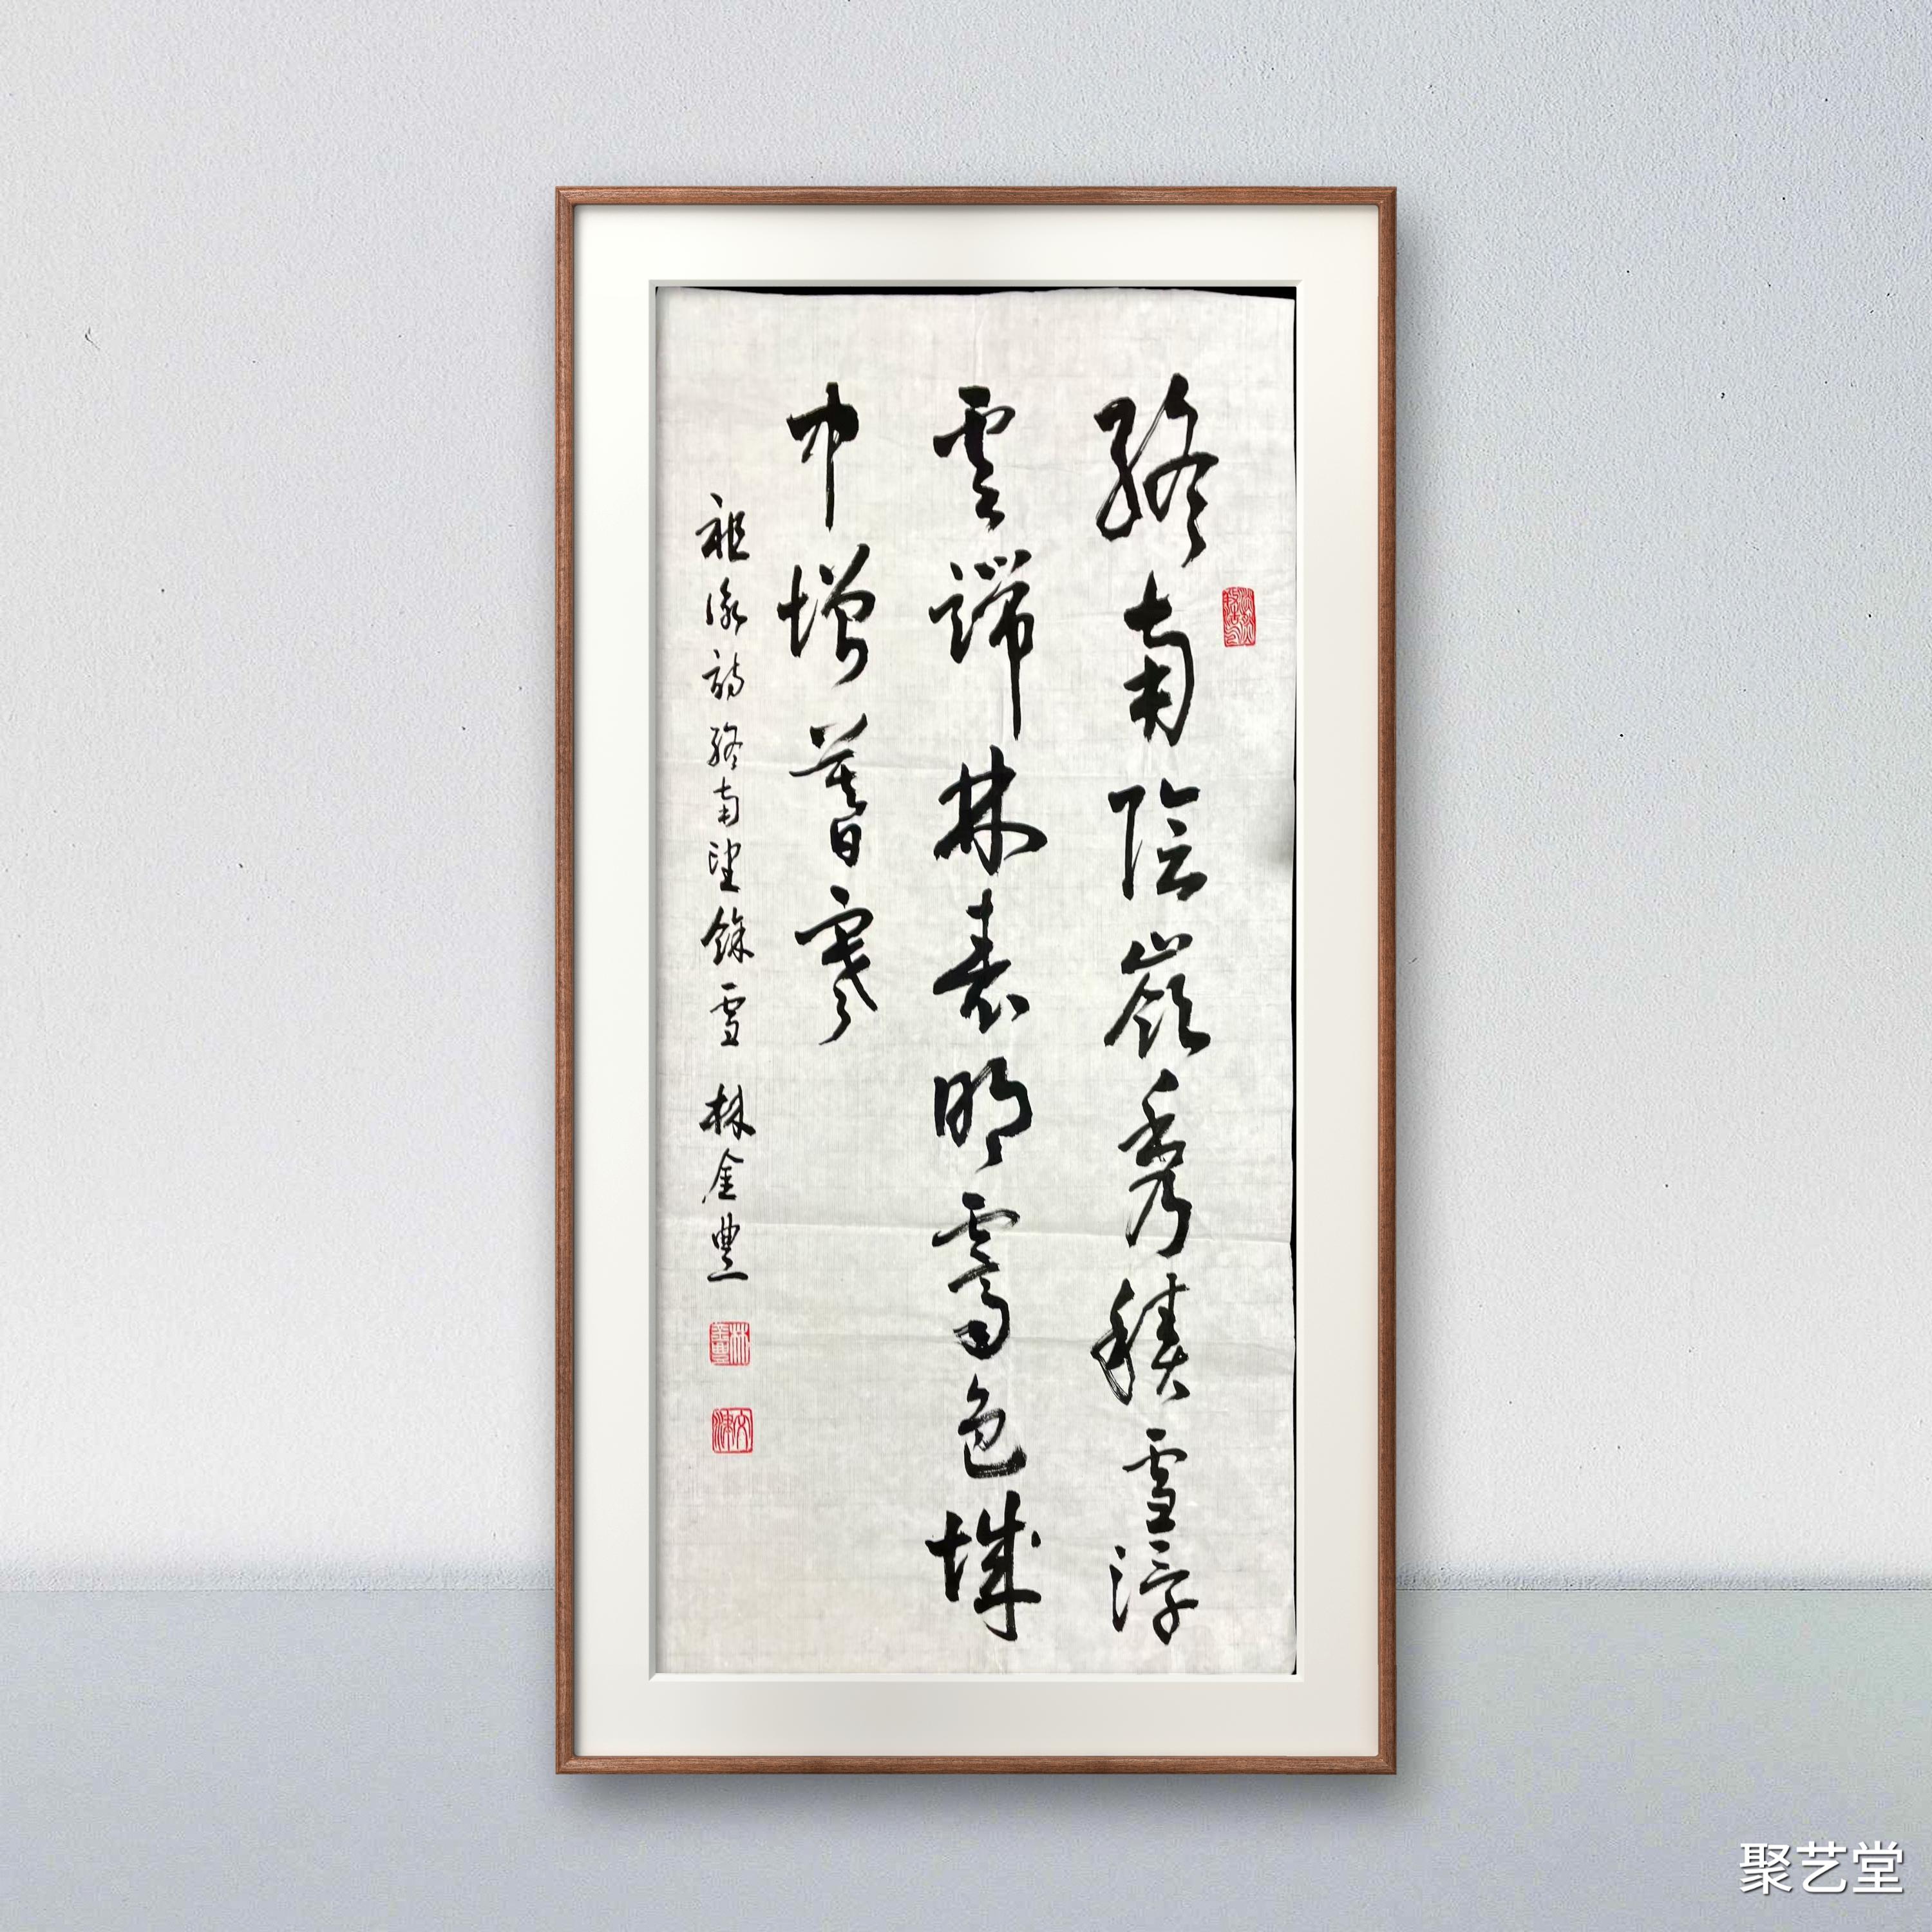 終南陰嶺秀積雪浮
雲端林表明霽色城
中增暮寒
祖詠詩終南望餘雪 林金豐
林金豐
聚艺堂